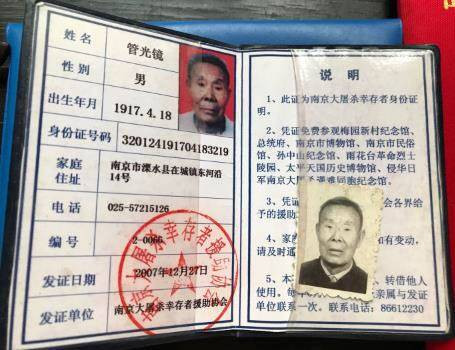 姓名 管光镜
性别 男
出生年月 1917.4.18
身份证号码 320124191704183219
家庭住址 南京市溧水县在城镇东河沿
14号
电话 025-57215126
编号 2-0066
发证日期 2007年12月27日
发证单位 南京大屠杀幸存者援助协会
南京大屠杀幸存者援助协会
说明
1、此证为南京大屠杀幸存者身份证
明。
2、凭证免费参观梅园新村纪念馆、
总统府、南京市博物馆、南京市民俗
馆、孙中山纪念馆、雨花台革命烈士
陵园、太平天国历史博物馆、侵华日
军南京大屠杀遇难同胞纪念馆。
3、凭证 会各界给
予的援助
4、家 如有变动,
请及时通
5、本 、转借他人
使用。每 亲属与发证
单位联系一次。联系电话:86612230